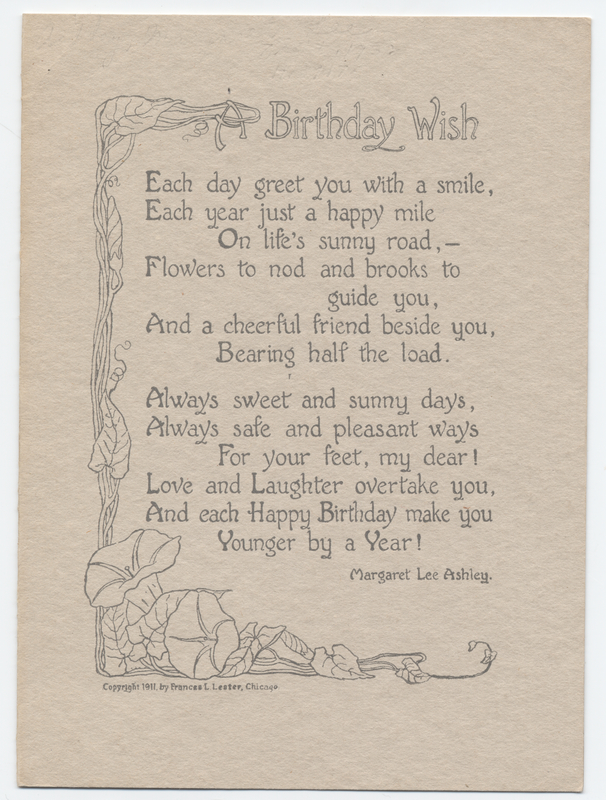 A Birthday Wish
Each day greet you with a smile,
Each year just a happy mile
On life's sunny road,—
Flowers to nod and brooks to
guide you,
And a cheerful friend beside you,
Bearing half the load.
Always sweet and sunny days,
Always safe and pleasant ways
For your feet, my dear!
Love and Laughter overtake you,
And each Happy Birthday make you
Younger by a Year!
Margaret Lee Ashley.
Copyright 1911, by Frances L. Lester, Chicago